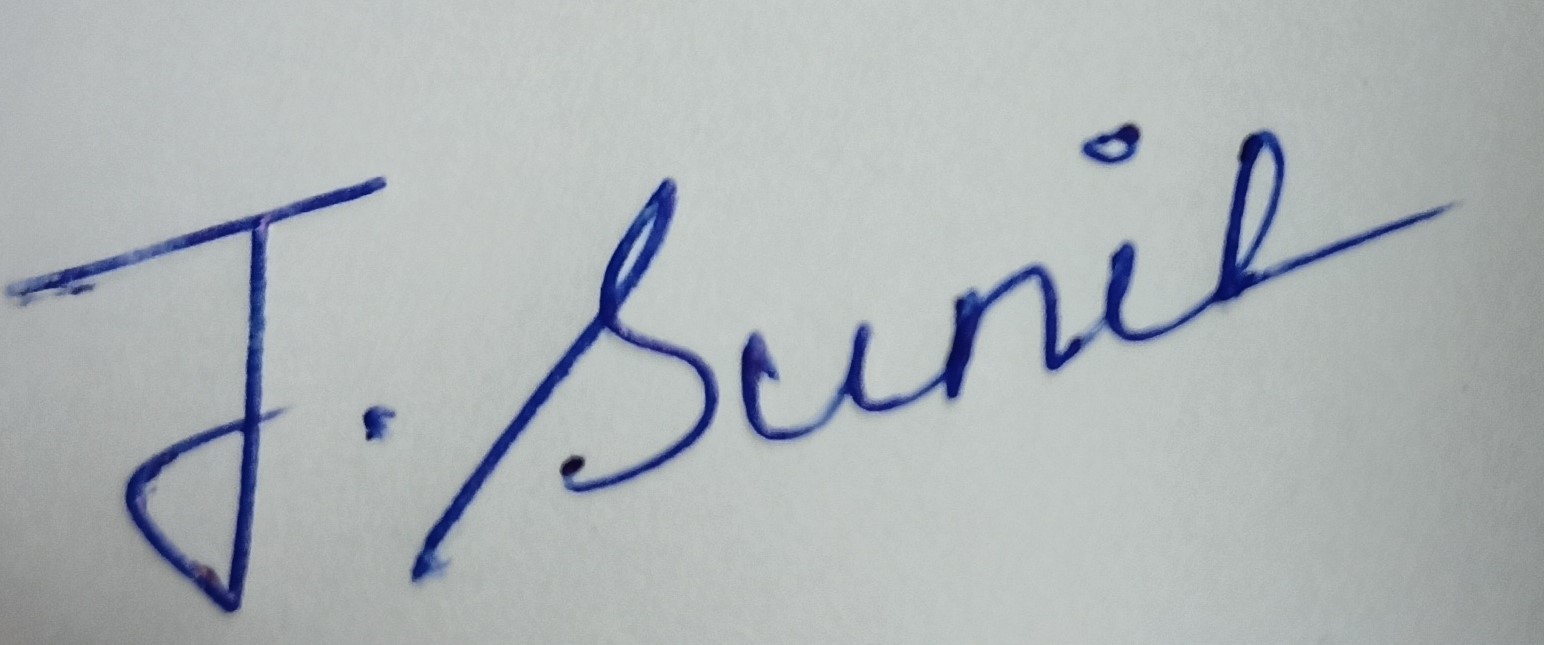 J. Sunil